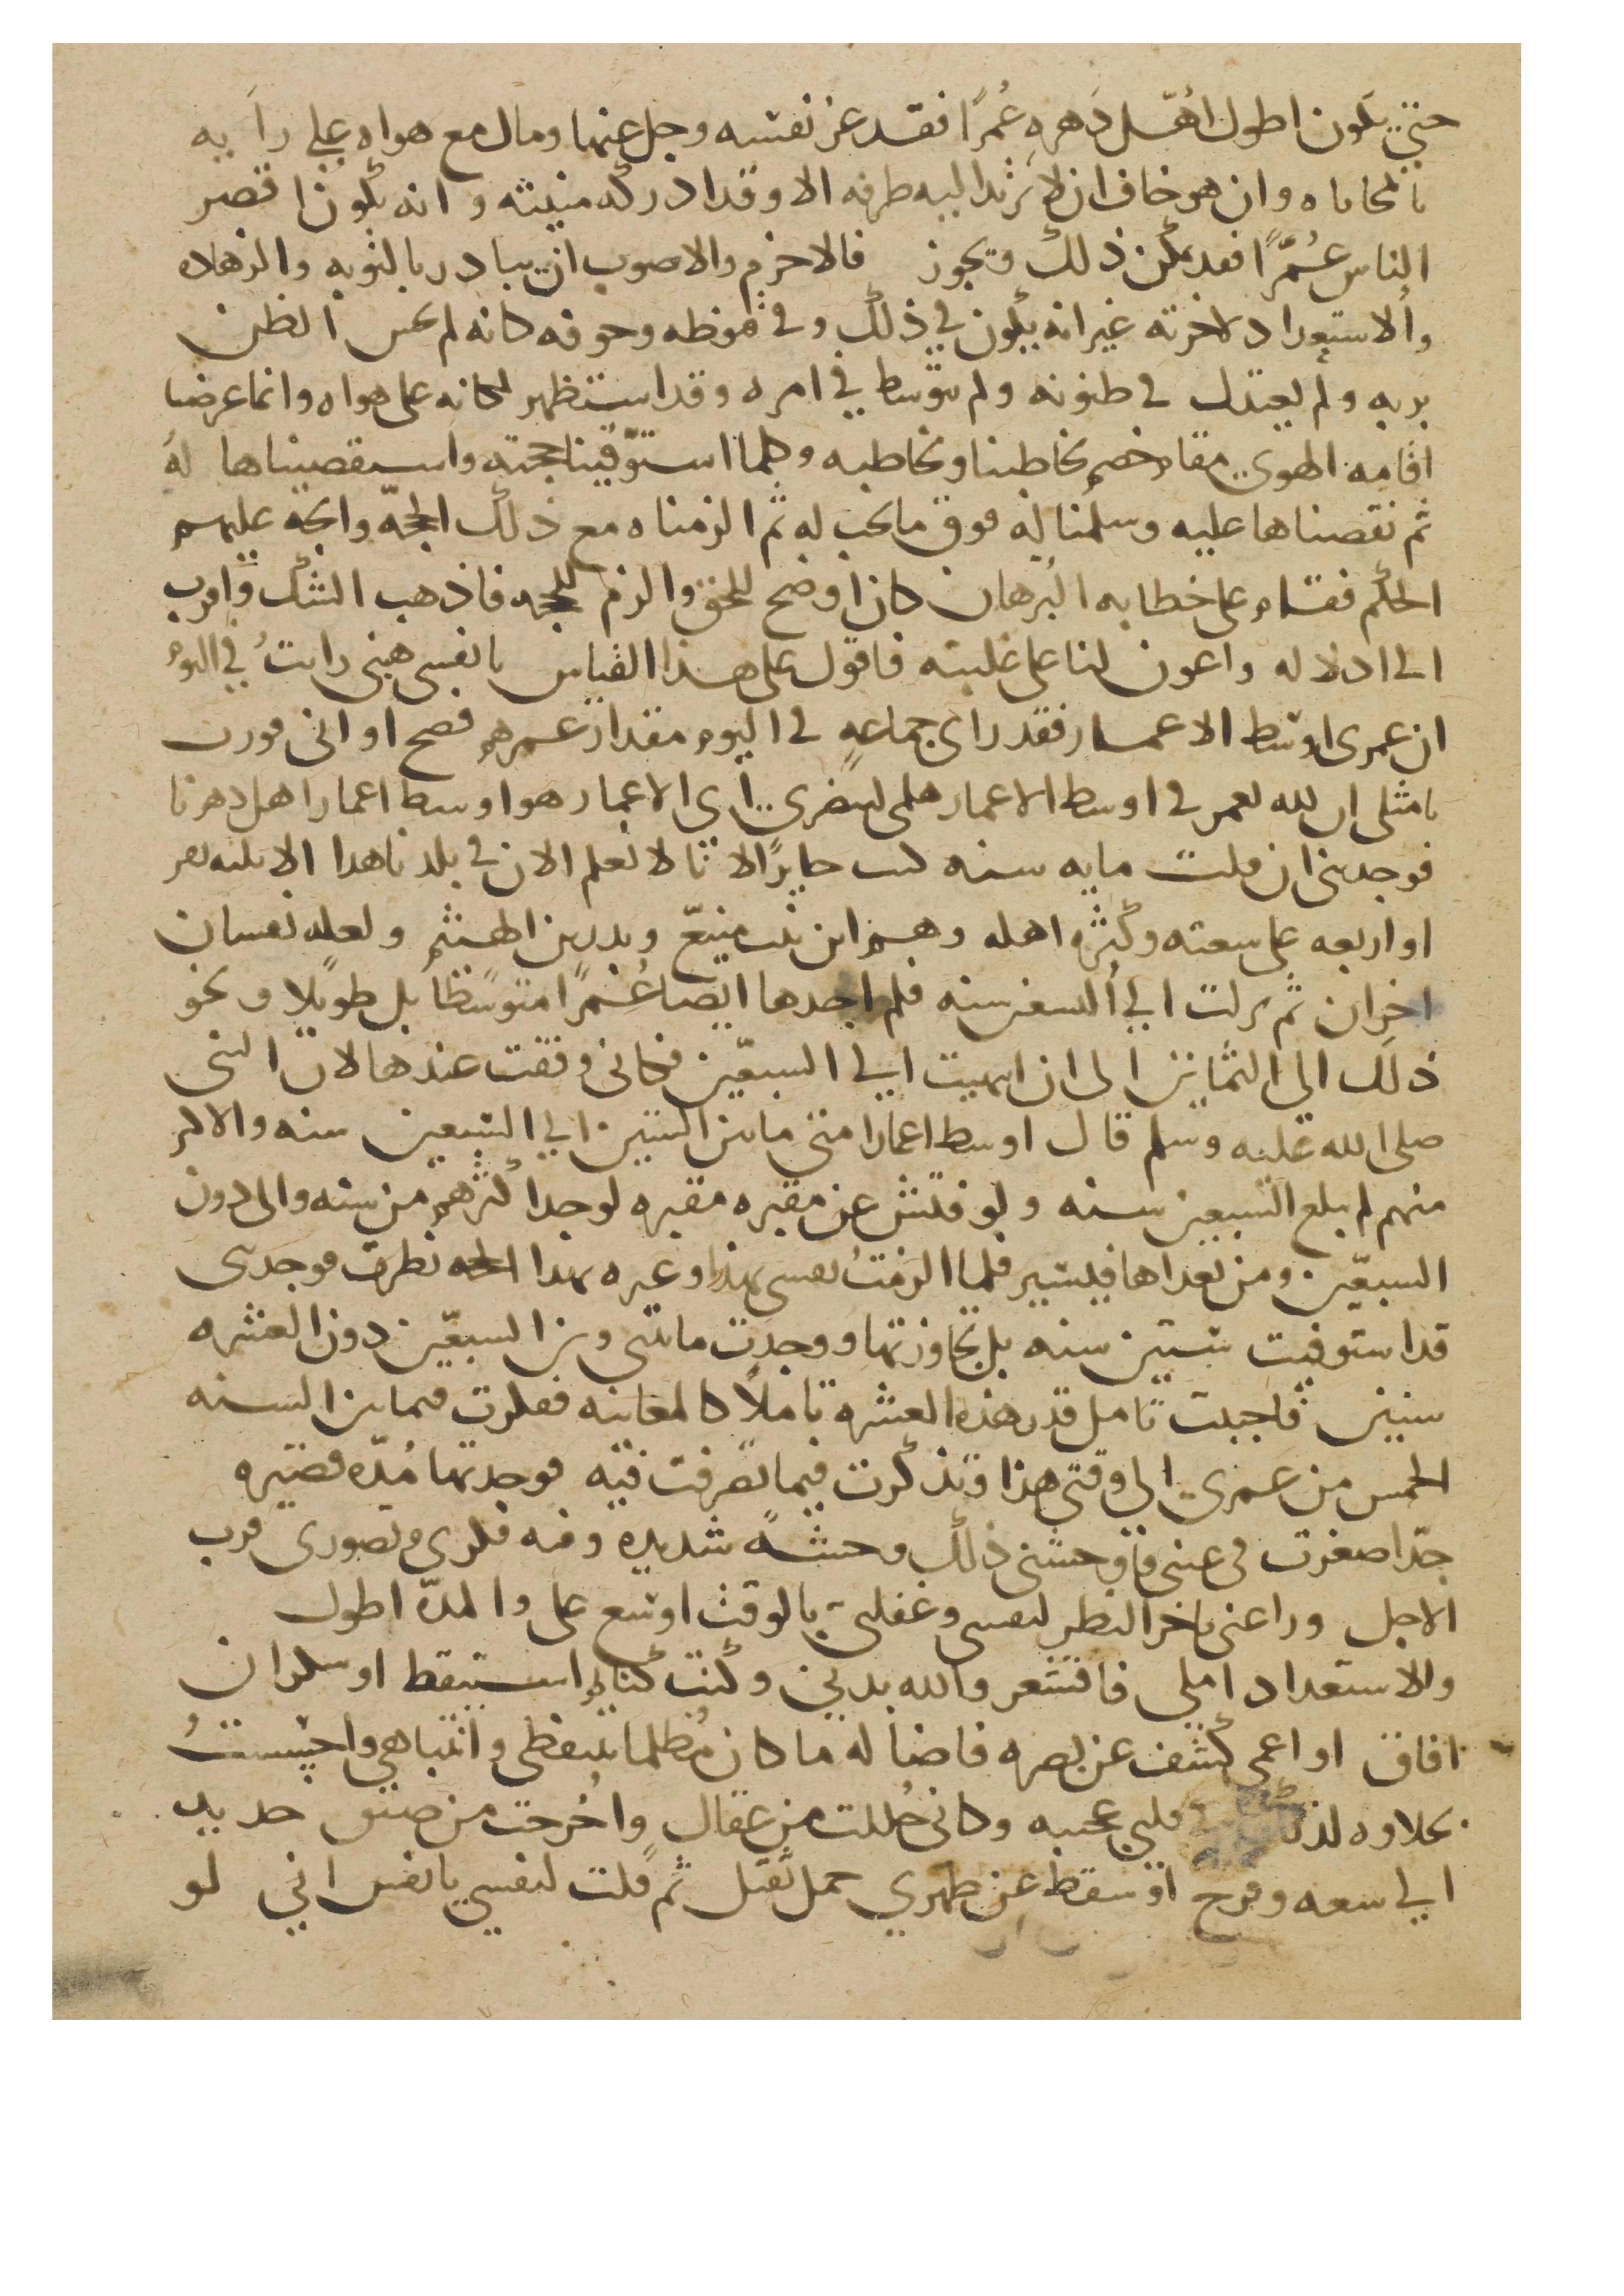 حتى يكون اطول اهل دهره عُمرًا فقد غر نفسه وجل عنها ومال مع هواه على رايه
بالمحاباه وان هو خاف ان لا يرتد اليه طرفه الا وقد ادركه منيته وانه يكون اقصر
الناس عُمرًا فقد يمكن ذلك ويجوز فالاحزم والاصوب ان يبادر بالتوبه والزهاده
والاستعداد لاخرته غير انه يكون في ذلك وفي وخوفه كانه لم يحسن الظن
بربه ولم يعتدل في ظنونه ولم يتوسط في امره وقد استظهر لكانه على هواه وانما غرضنا
اقامه الهوى مقام خصم يخاطبنا ونخاطبه وكلما استوفينا حجته واستقصيناها له
ثم نقضناها عليه وسلمنا له فوق ما يجب له ثم الزمناه مع ذلك الحجه واتجه عليهم
الحكم فقام على خطابه البرهان كان اوضح للحق والزم للحجه فاذهب الشك واقرب
الى ادلاله واعون لنا على غلبته فاقول على هذا القياس يا نفسي هبني رايتُ في اليوم
ان عمرى اوسط الاعمار فقد راى جماعه في اليوم مقدار عمرهم فصح او انى
يا مثلى ان الله يعمر في اوسط الاعمار هلمى لننظرى اى الاعمار هو اوسط اعمار اهل دهرنا
فوجدتنى ان قلت مايه سنه كنت حايرًا لاننا لا نعلم الان في بلدنا هذا الا ثلثه نفر
او اربعه على سعته وكثره اهله وهم ابن بنت منيع وبدر بن الهيثم ولعله نفسان
اخران ثم نزلت الى التسعين سنه فلم اجدها ايضا عُمرًا متوسطًا بل طويلا ونحو
ذلك الى الثمانين الى ان انتهيت الى السبعين فكانى وقفت عندها لان النبى
صلى الله عليه وسلم قال اوسط اعمار امتى ما بين الستين الى السبعين سنه والاكثر
منهم لم يبلغ السبعين سنه ولو فتش عن مقبره مقبره لوجد اكثرهم من سنه والى دون
السبعين ومن تعداها فيسير فلما الزمتُ نفسى هذا وغيره بهذا الحجه نظرت فوجدتنى
قد استوفيت ستين سنه بل تجاوزتها ووجدت ما بينى وبين السبعين دون العشره
سنين فاحببت تامل قدر هذه العشره تاملًا كالمعاينه ففكرت فيما بين السنه
الخمس من عمرى الى وقتى هذا وتذكرت فيما تصرفت فيه فوجدتها مُدّه قصيره
جدّا صغرت في عينى فاوحشنى ذلك وحشهً شديده وفه فكرى وتصورى قرب
الاجل وراعنى تاخر النظر لنفسى وغفلتى بالوقت اوسع على والمدّه اطول
والاستعداد املى فاقشعر والله بدنى وكنت كنائم استيقظ او سكران
افاق او اعمى كشف عن بصره فاضا له ما كان مُظلما بتيقظى وانتباهى واحسستُ
بحلاوه لذلك في قلبى عجيبه وكانى حُللت من عقال واخرجت من ضيق حديد
الى سعه وفرح او سقط عن ظهري حمل ثقيل ثم قلت لنفسي يا نفس اني لو